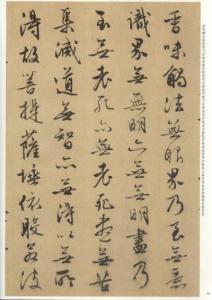 香味觸法無眼界乃至無意
識界無無明亦無無明盡乃
至無老死亦無老死盡無苦
集滅道無智亦無得以無所
得故菩提薩埵依般若波